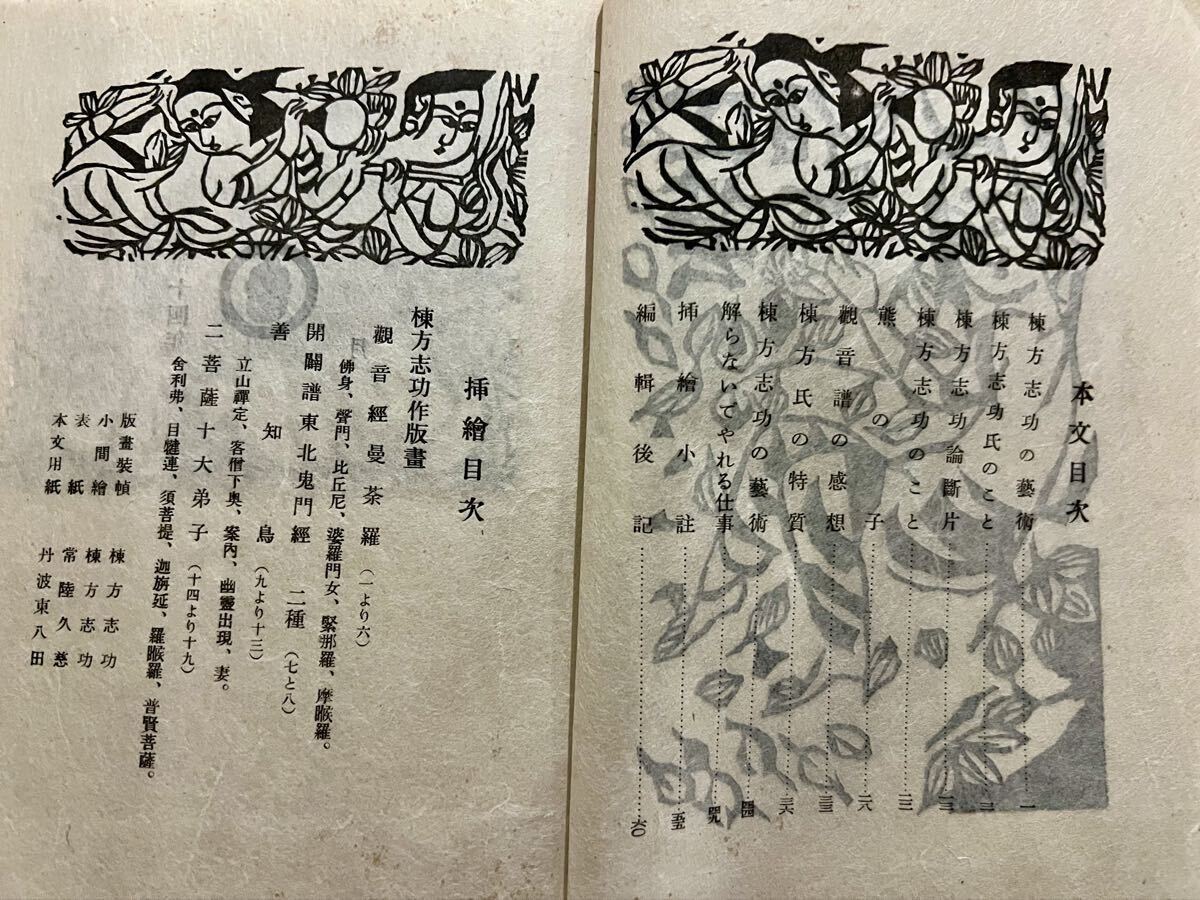 本文目次
棟方志功の藝術……一
棟方志功氏のこと……
棟方志功論斷片……
棟方志功のこと……
熊の子……二八
觀音譜の感想……三三
棟方氏の特質……三六
棟方志功の藝術……四四
解らないでやれる仕事……四九
挿繪小註……五五
編輯後記……六〇
挿繪目次
棟方志功作版畫
觀音經曼荼羅（一より六）
佛身、聲門、比丘尼、婆羅門女、緊那羅、摩睺羅。
開闢譜東北鬼門經 二種（七と八）
善知鳥（九より十三）
立山禪定、客僧下奥、案內、幽靈出現、妻。
二菩薩十大弟子（十四より十九）
舍利弗、目犍連、須菩提、迦旃延、羅睺羅、普賢菩薩。
版畫裝幀 棟方志功
小間繪 棟方志功
表紙 常陸久慈
本文用紙 丹波東八田
十回
月